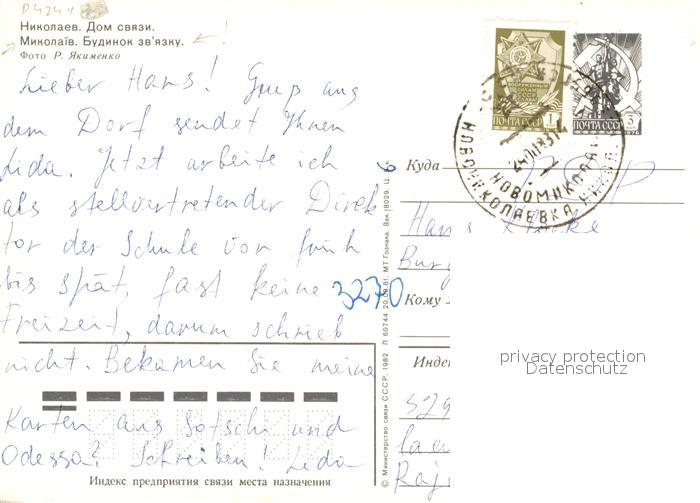 Николаев. Дом связи.
Миколаїв. Будинок зв'язку.
Фото Р. Якименко
Lieber Hans! Grup aus
dem Dorf sendet Ihnen
Lida. Jetzt arbeite ich
als stellvertretender Direk
tor der Schule von früh
bis spät, fast keine
Freizeit, darum schrieb
nicht. Bekamen Sie meine
Karten aus Sotschi und
Odessa? Schreiben! Lida
Индекс предприятия связи места назначения
3270
© Министерство связи СССР, 1982. Л 60744 20.09.81. МТ Гознака. Зак. 18029. Ц.
ПОЧТА СССР 1
ПОЧТА СССР 3
1976
НОВОМИКОЛАЇВКА
НОВОНИКОЛАЕВКА
Куда
Hans
Кому
Индек
privacy protection
Datenschutz
329
Raj